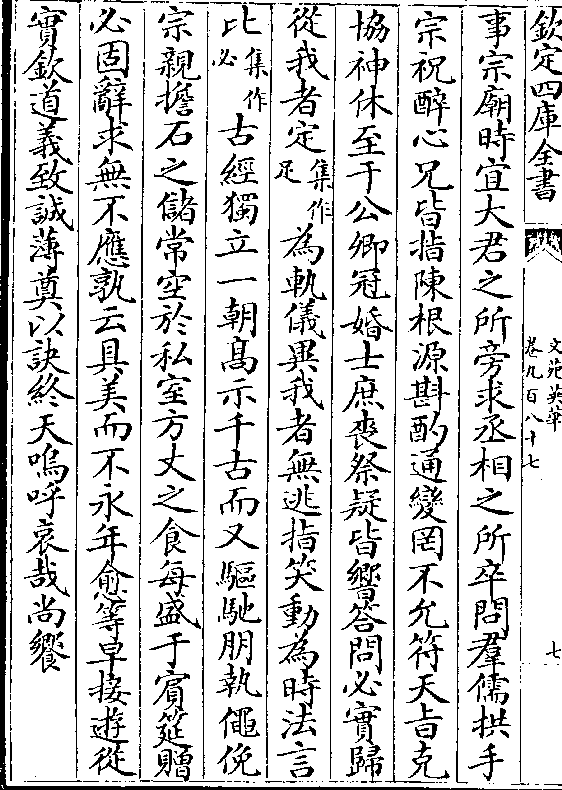 欽定四庫全書
文苑英華
卷九百八十七
七
事宗廟時宜大君之所旁求丞相之所卒問羣儒拱手
宗祝醉心兄皆指陳根源斟酌通變罔不允符天旨克
協神休至于公卿冠婚士庶喪祭疑皆響答問必實歸
從我者定集作足為軌儀異我者無逃指笑動為時法言
比集作必古經獨立一朝高示千古而又驅馳朋執僶俛
宗親擔石之儲常空於私室方丈之食每盛于賓筵贈
必固辭求無不應孰云具美而不永年愈等早接遊從
實欽道義致誠薄奠以訣終天嗚呼哀哉尚饗